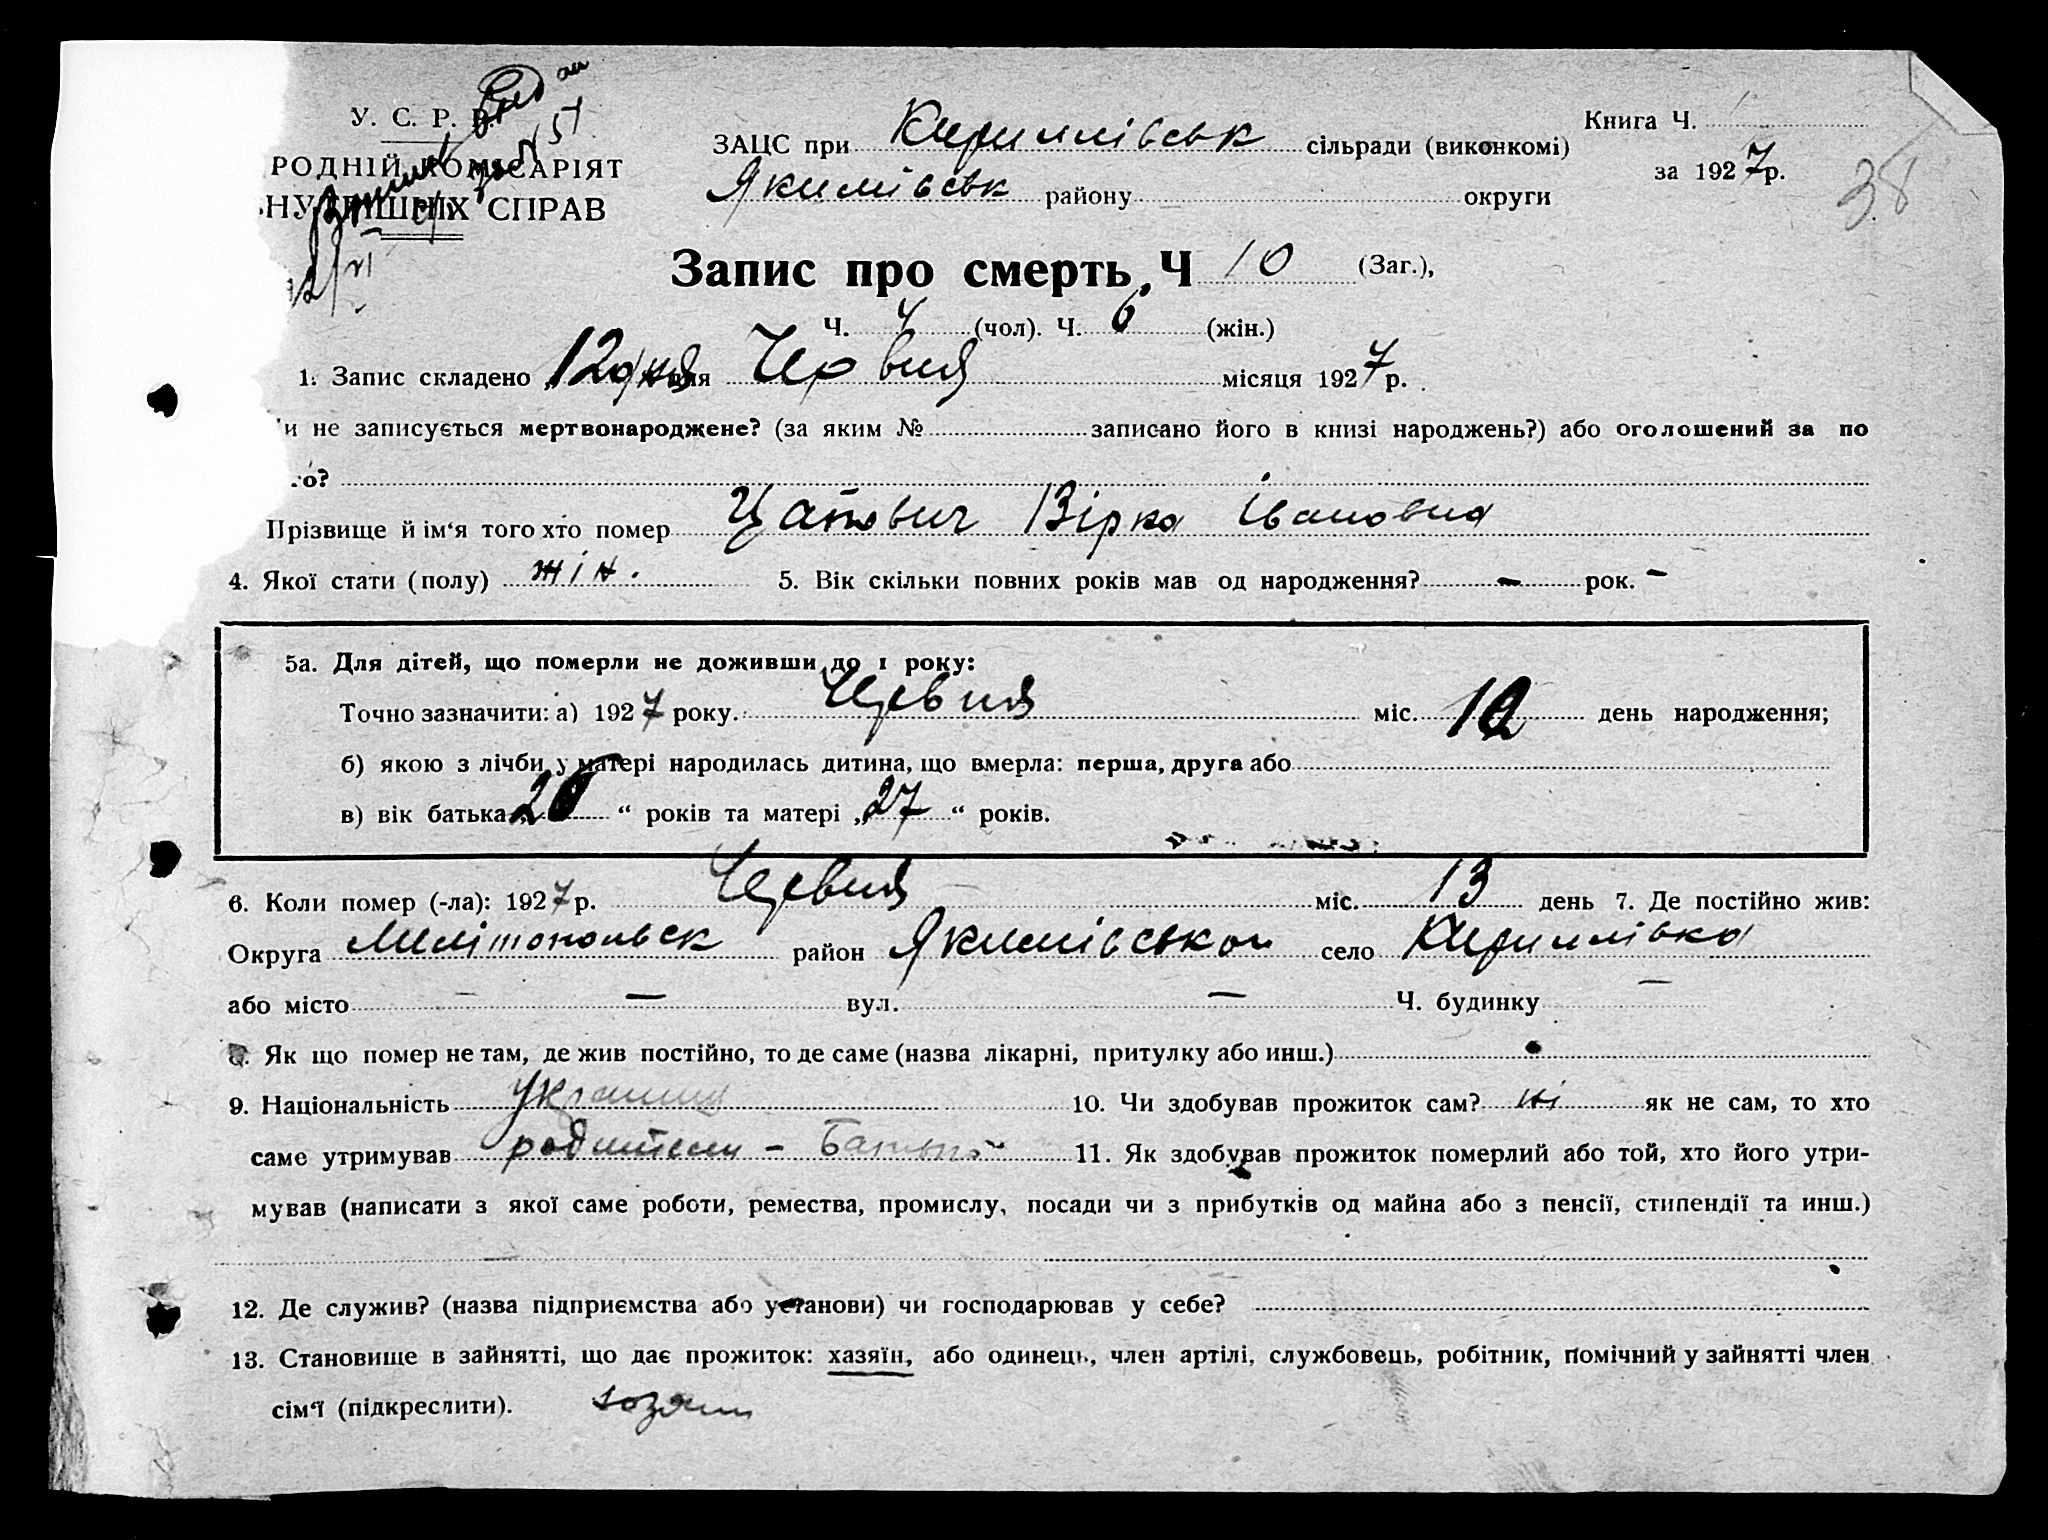 У. С. Р. Р.
РОДНІЙ КОМІСАРІЯТ
НУТРІШНІХ СПРАВ
ЗАЦС при Кириллівськ сільради (виконкомі)
Якимівськ району округи
Книга Ч.
за 1927р.
38
Запис про смерть, Ч 10 (Заг.),
Ч. 4 (чол). Ч. 6 (жін.)
1. Запис складено „12 дня Червня місяця 1927р.
и не записується мертвонароджене? (за яким № записано його в книзі народжень?) або оголошений за по
го?
Прізвище й ім‘я того хто помер Цапович Вірка Івановна
4. Якої стати (полу) жін. 5. Вік скільки повних років мав од народження? – рок. –
5а. Для дітей, що померли не доживши до 1 року:
Точно зазначити: а) 1927 року. Червня міс. день народження;
б) якою з лічби у матері народилась дитина, що вмерла: перша, друга або
в) вік батька „ “ років та матері „27“ років.
6. Коли помер (-ла): 1927р. Червня міс. 13 день 7. Де постійно жив:
Округа Мелітопольск район Якимівськой село Кириллівка
або місто – вул. – Ч. будинку –
Як що помер не там, де жив постійно, то де саме (назва лікарні, притулку або инш.)
9. Національність 10. Чи здобував прожиток сам? ні як не сам, то хто
саме утримував родители – 11. Як здобував прожиток померлий або той, хто його утри-
мував (написати з якої саме роботи, ремества, промислу, посади чи з прибутків од майна або з пенсії, стипендії та инш.)
12. Де служив? (назва підприємства або установи) чи господарював у себе?
13. Становище в зайнятті, що дає прожиток: хазяїн, або одинець, член артілі, службовець, робітник, помічний у зайнятті член
сім‘ї (підкреслити).